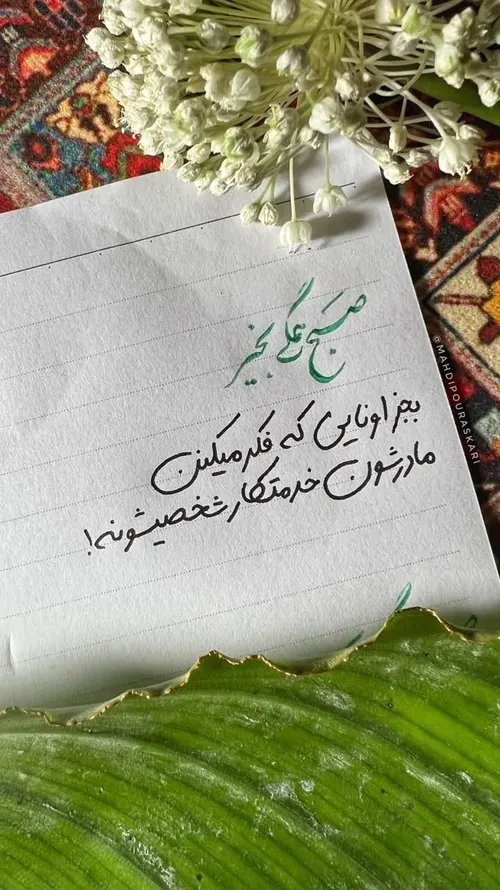 صبح همگی بخیر
بجز اونایی که فکر میکنن
مادرشون خدمتکار شخصیشونه!
@MAHDIPOURASKARI